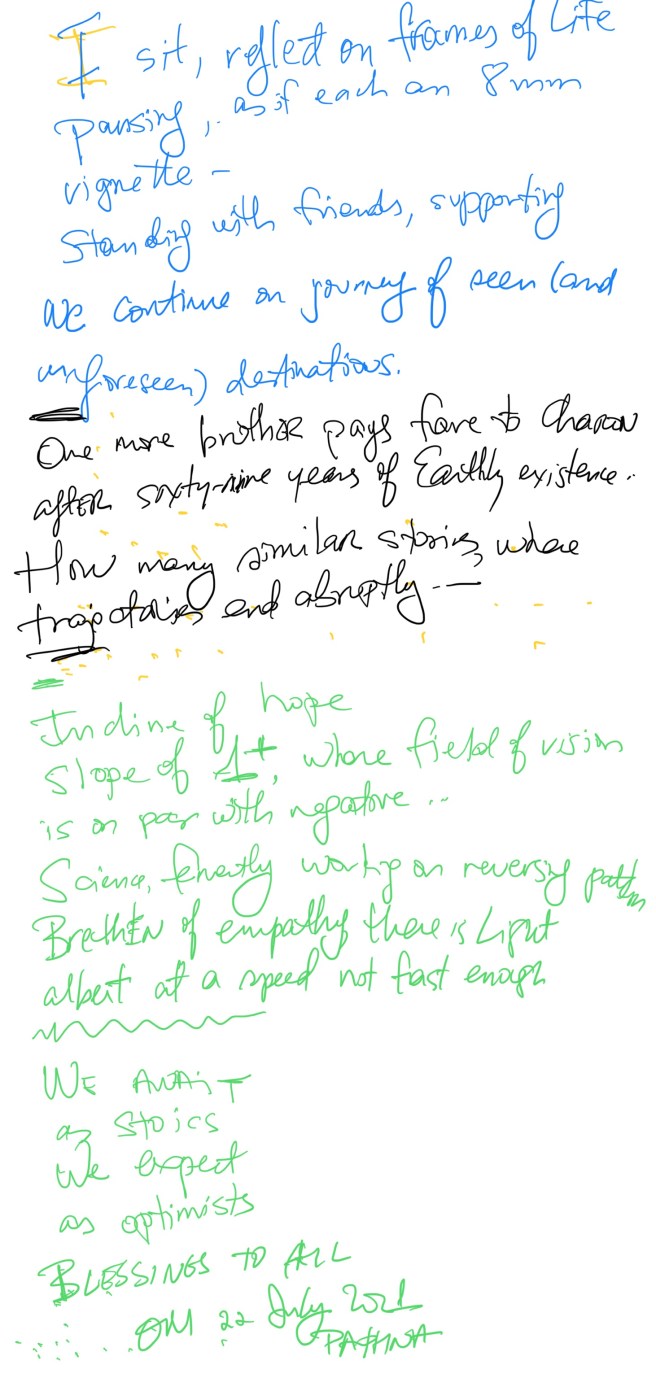 I sit, reflect on frames of Life
pausing, as if each an 8mm
vignette -
Standing with friends, supporting
We continue on journey of seen (and
unforeseen) destinations.
One more brother pays fare to Charon
after sixty-nine years of Earthly existence..
How many similar stories, where
trajectories end abruptly..—
Incline of hope
Slope of 1+, where field of vision
is on par with negative ..
Science, working on reversing path
of empathy there is Light
albeit at a speed not fast enough
WE AWAIT
as stoics
We expect
as optimists
BLESSINGS TO ALL
OM 22 July 2021